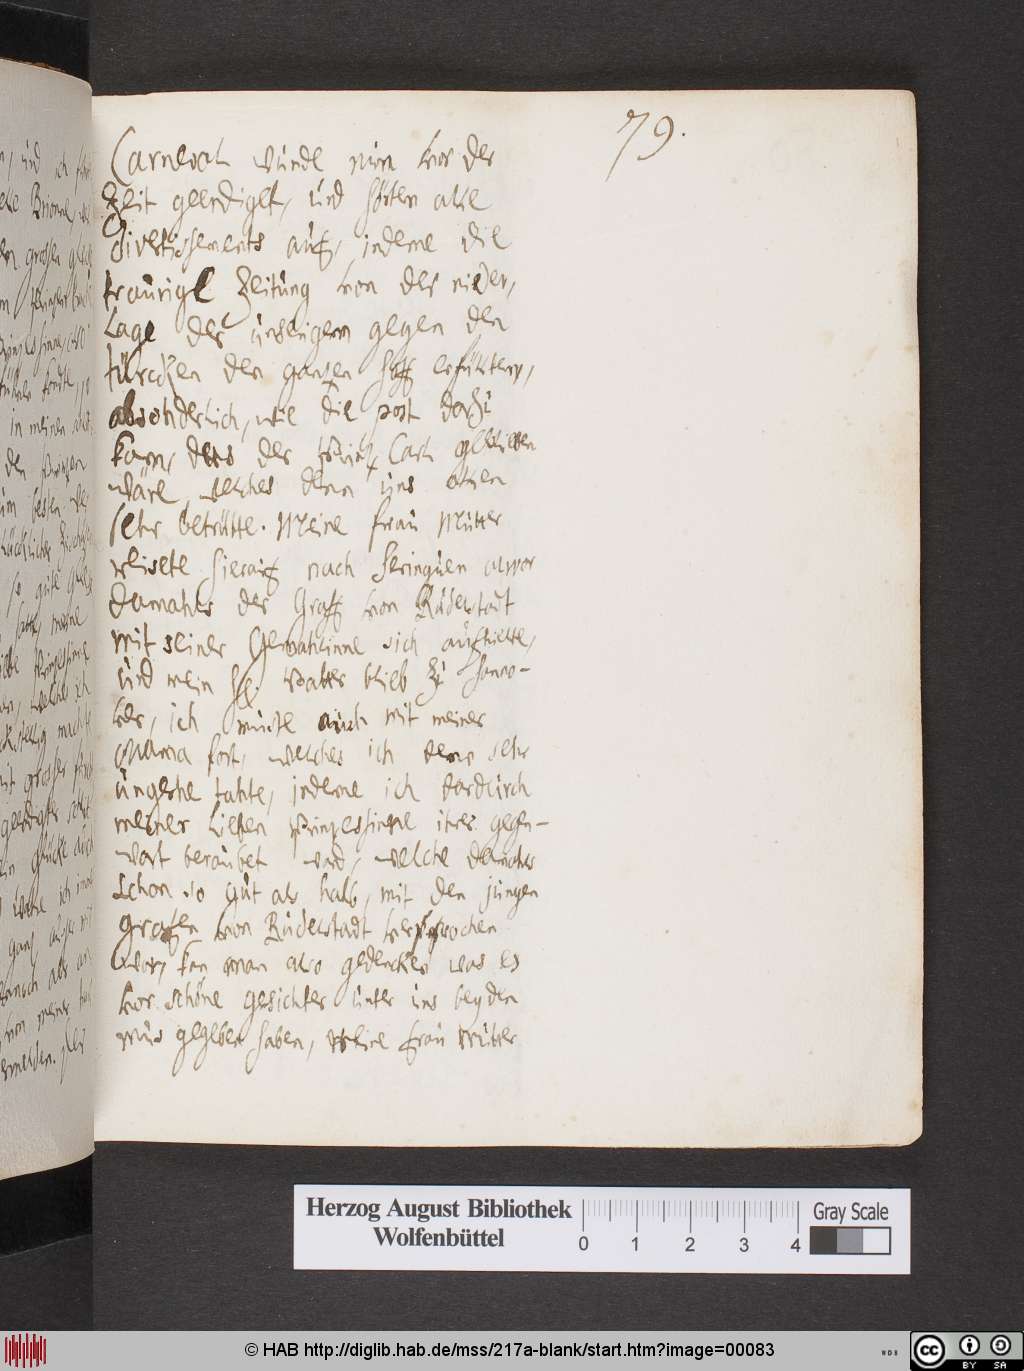 79.
Carneval wurde nun vor der
Zeit geendiget, und hörten alle
Divertissements auf, indeme die
traurige Zeitung von der nider,
lage der unserigen gegen den
türcken den ganzen hoff erfülleten,
absonderlich, wie die post dazu
kam, das der Prinz Carl geblieben
wäre, welches denn uns allen
sehr betrübte. Meine frau Mutter
reisete hierauf nach heringen alwo
damahls der Graff von Rudelstadt
mit seiner Gemahlinne sich aufhielte,
und mein hl. Vatter blieb zu Hano-
ver, ich muste auch mit meiner
Mama fort, welches ich denn sehr
ungerne tahte, indeme ich dardurch
meiner lieben Prinzessinne ihrer gegen-
wart beraubet ward, welche damahls
schon so gut als halb, mit den jungen
grafen von Rudelstadt versprochen
war, kan man also gedencken was es
vor schöne gesichter unter uns beyden
mus gegeben haben, Meine frau Mutter
Herzog August Bibliothek
Wolfenbüttel
0 1 2 3 4
Gray Scale
© HAB http://diglib.hab.de/mss/217a-blank/start.htm?image=00083
WDB
cc BY SA